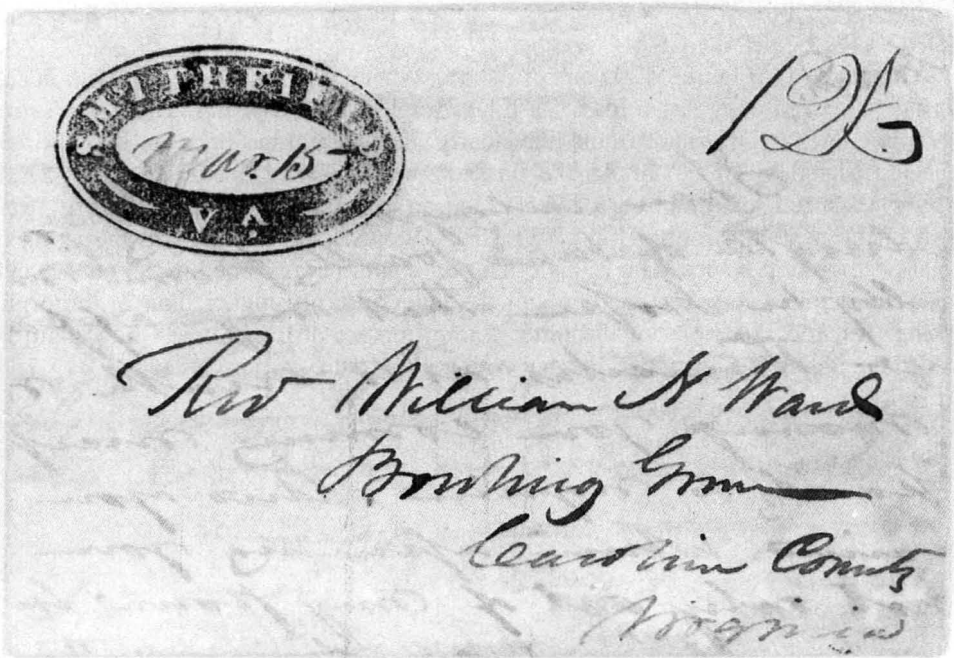 SMITHFIELD
Mar 15
VA.
12½
Rev William N Ward
Bowling Green
Caroline County
Virginia